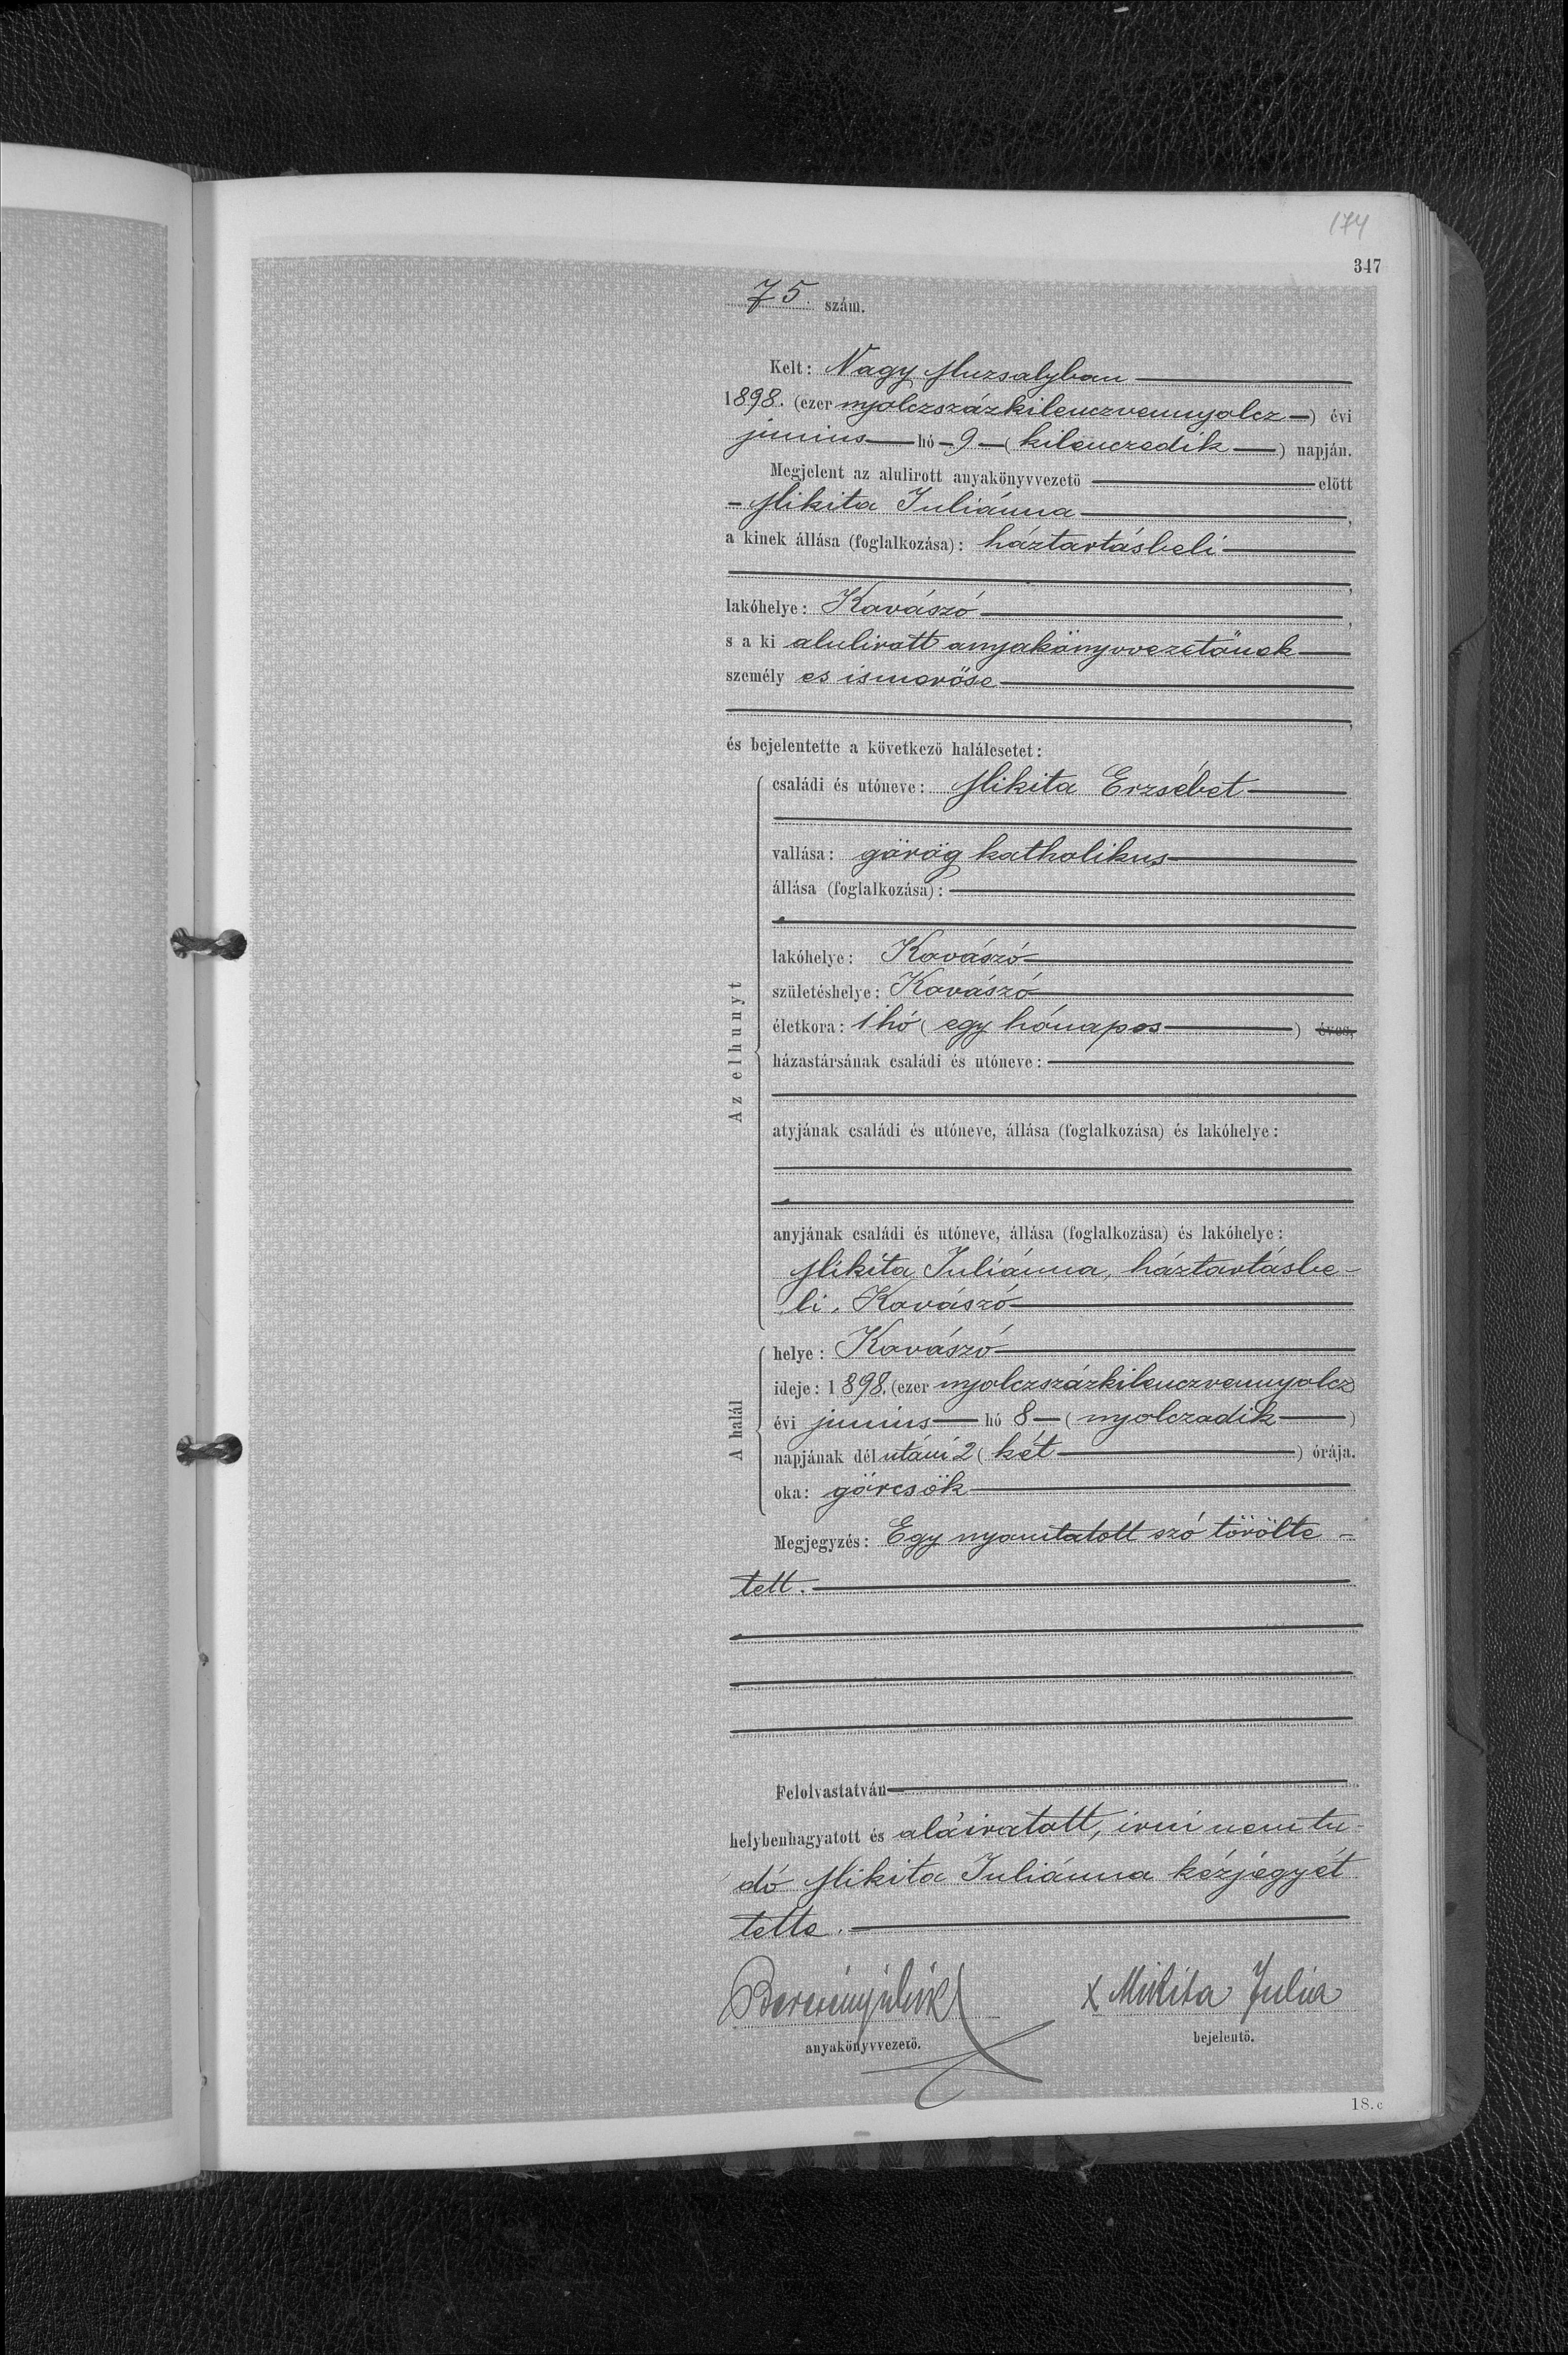 174
347
75. szám.
Kelt: Nagy Muzsalyban
1898. (ezer nyolczszázkilenczvennyolcz) évi
junius hó 9 (kilenczedik) napján.
Megjelent az alulirott anyakönyvvezető előtt
Mikita Juliánna,
a kinek állása (foglalkozása): háztartásbeli
,
lakóhelye: Kovászó,
s a ki alulirott anyakönyvvezetőnek
személyes ismerőse
,
és bejelentette a következő halálesetet:
Az elhunyt
családi és utóneve: Mikita Erzsébet
vallása: görög katholikus
állása (foglalkozása):
lakóhelye: Kovászó
születéshelye: Kovászó
életkora: 1 hó (egy hónapos) éves,
házastársának családi és utóneve:
atyjának családi és utóneve, állása (foglalkozása) és lakóhelye:
anyjának családi és utóneve, állása (foglalkozása) és lakóhelye:
Mikita Juliánna, háztartásbe-
li, Kovászó
A halál
helye: Kovászó
ideje: 1898. (ezer nyolczszázkilenczvennyolcz)
évi junius hó 8 (nyolczadik)
napjának délutáni 2 (két) órája.
oka: görcsök
Megjegyzés: Egy nyomtatott szó törölte-
tett.
Felolvastatván
helybenhagyatott és aláiratott, irni nem tu-
dó Mikita Juliánna kézjegyét
tette.
x Mikita Julia
anyakönyvvezető. bejelentő.
18.c